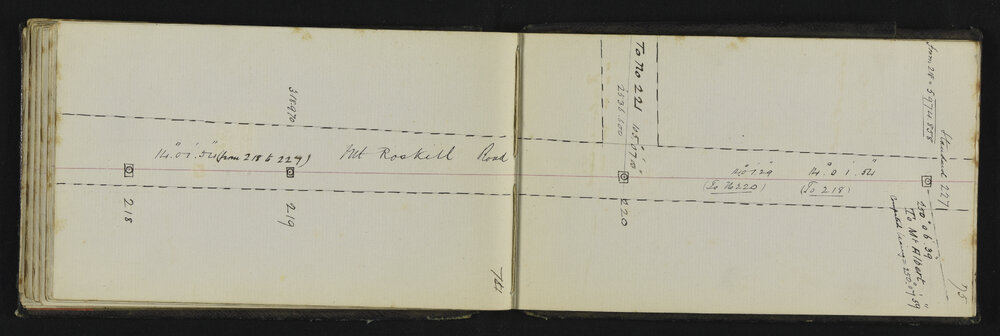 318.970
14° 01' 54" (from 218 to 227)
Mt Roskill Road
218
219
74
To No 221 165° 07' 10"
2536.500
220
14° 01' 29
(To No 220)
14° 0 1' 54"
(To 218)
from 218 = 5974.858
Standard 227
250° 06' 39"
To Mt Albert
75